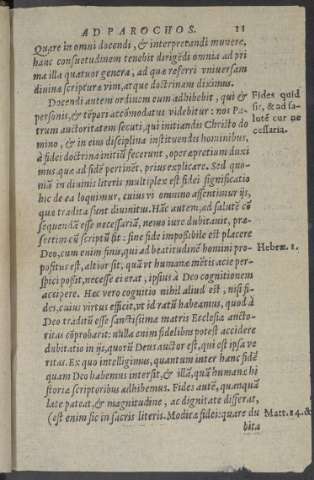 AD PAROCHOS. 11
Quare in omni docendi, & interpretandi munere,
hanc consuetudinem tenebit dirigēdi omnia ad pri
ma illa quatuor genera, ad quæ referri vniuersam
diuinæ scripturæ vim, atque doctrinam diximus.
Docendi autem ordinem eum adhibebit, qui &
personis, & tēpori accōmodatus videbitur: nos Pa-
trum auctoritatem secuti, qui initiandis Christo do
mino, & in eius disciplina instituendis hominibus,
à fidei doctrina initiū fecerunt, operæpretium duxi
mus quæ ad fidē pertinēt, prius explicare. Sed quo-
niā in diuinis literis multiplex est fidei significatio
hic de ea loquimur, cuius vi omnino assentimur ijs,
quæ tradita sunt diuinitus. Hāc autem, ad salutē cō
sequendā esse necessariā, nemo iure dubitauit, præ-
sertim cū scriptū sit: sine fide impossibile est placere
Deo, cum enim finis, qui ad beatitudinē homini pro-
positus est, altior sit, quā vt humanæ mētis acie per-
spici possit, necesse ei erat, ipsius à Deo cognitionem
accipere. Hæc vero cognitio nihil aliud est, nisi fi-
des, cuius virtus efficit, vt id ratū habeamus, quod à
Deo traditū esse sanctissimæ matris Ecclesiæ aucto-
ritas cōprobarit: nulla enim fidelibus potest accidere
dubitatio in ijs, quorū Deus auctor est, qui est ipsa ve
ritas. Ex quo intelligimus, quantum inter hanc fidē
quam Deo habemus intersit, & illā, quā humanæ hi
storiæ scriptoribus adhibemus. Fides autē, quamquā
late pateat, & magnitudine, ac dignitate differat,
(est enim sic in sacris literis. Modicæ fidei: quare du
bita
Fides quid
sit, & ad sa-
lutē cur ne
cessaria.
Hebræ. 1.
Matt. 14. &